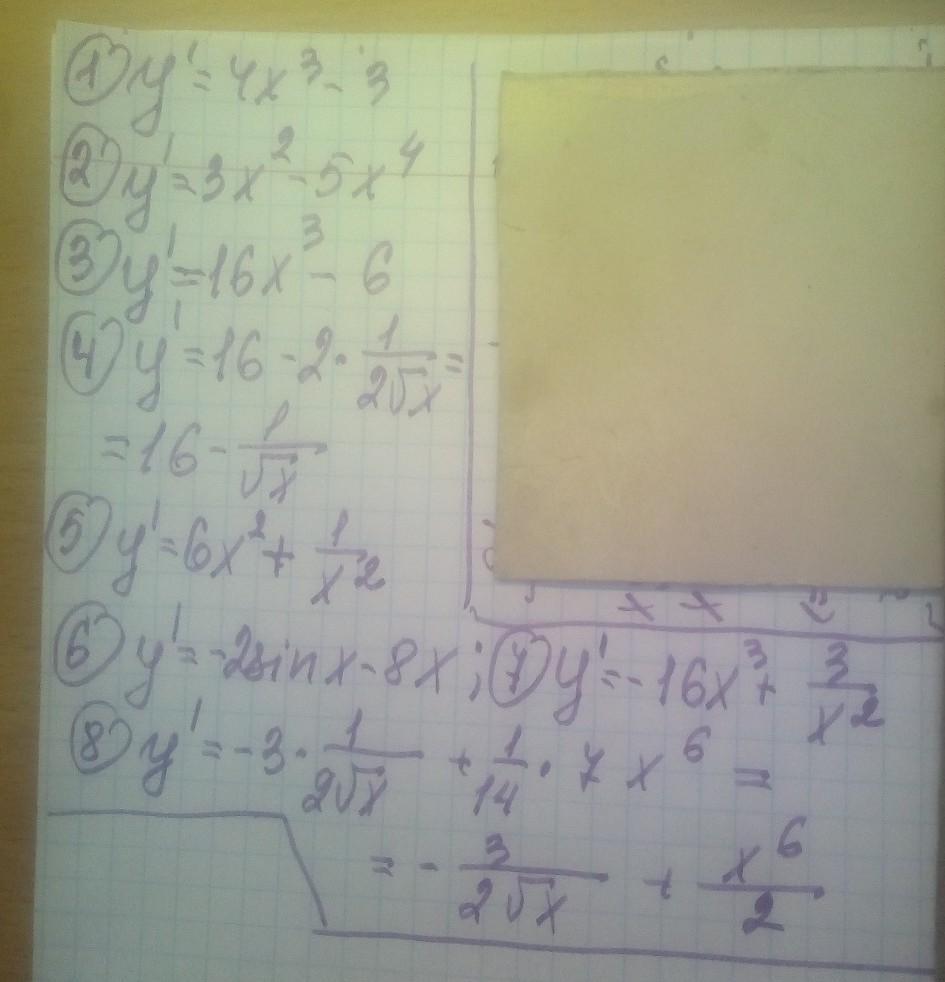 ① y' = 4x³ - 3
② y' = 3x² - 5x⁴
③ y' = 16x³ - 6
④ y' = 16 - 2 · 1/(2√x) =
= 16 - 1/√x
⑤ y' = 6x² + 1/x²
⑥ y' = -2sinx - 8x ; ⑦ y' = -16x³ + 3/x²
⑧ y' = -3 · 1/(2√x) + 1/14 · 7x⁶ =
= - 3/(2√x) + x⁶/2